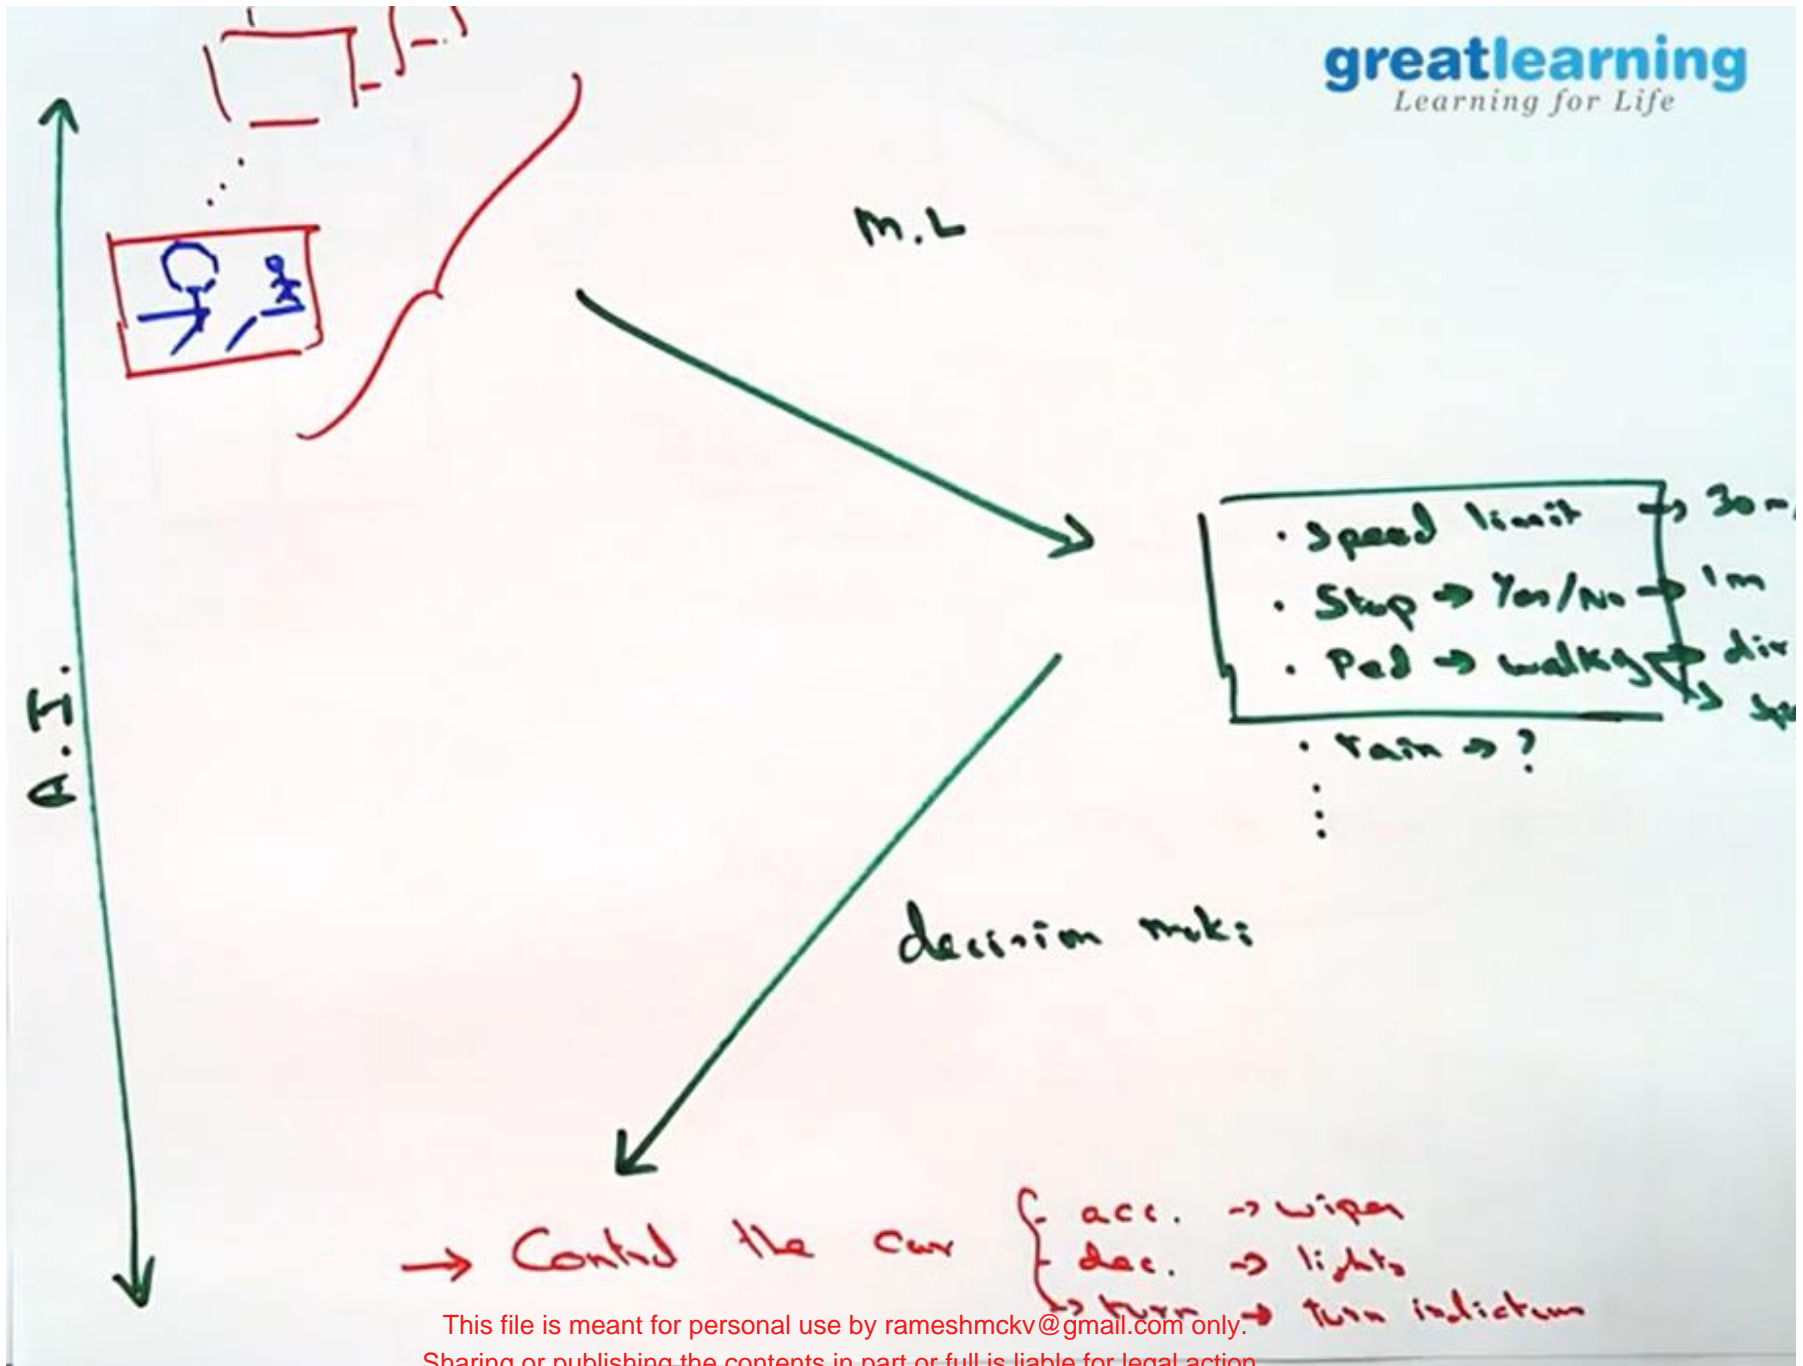 greatlearning
Learning for Life
M.L
A.I.
. Speed limit → 30 m
. Stop → Yes/No → 1m
. Ped → walkg → dir
→ sp
. rain → ?
decision mak:
→ Control the car { - acc. → wiper
- dec. → lights
→ turn → turn indicturs
This file is meant for personal use by rameshmckv@gmail.com only.
Sharing or publishing the contents in part or full is liable for legal action.